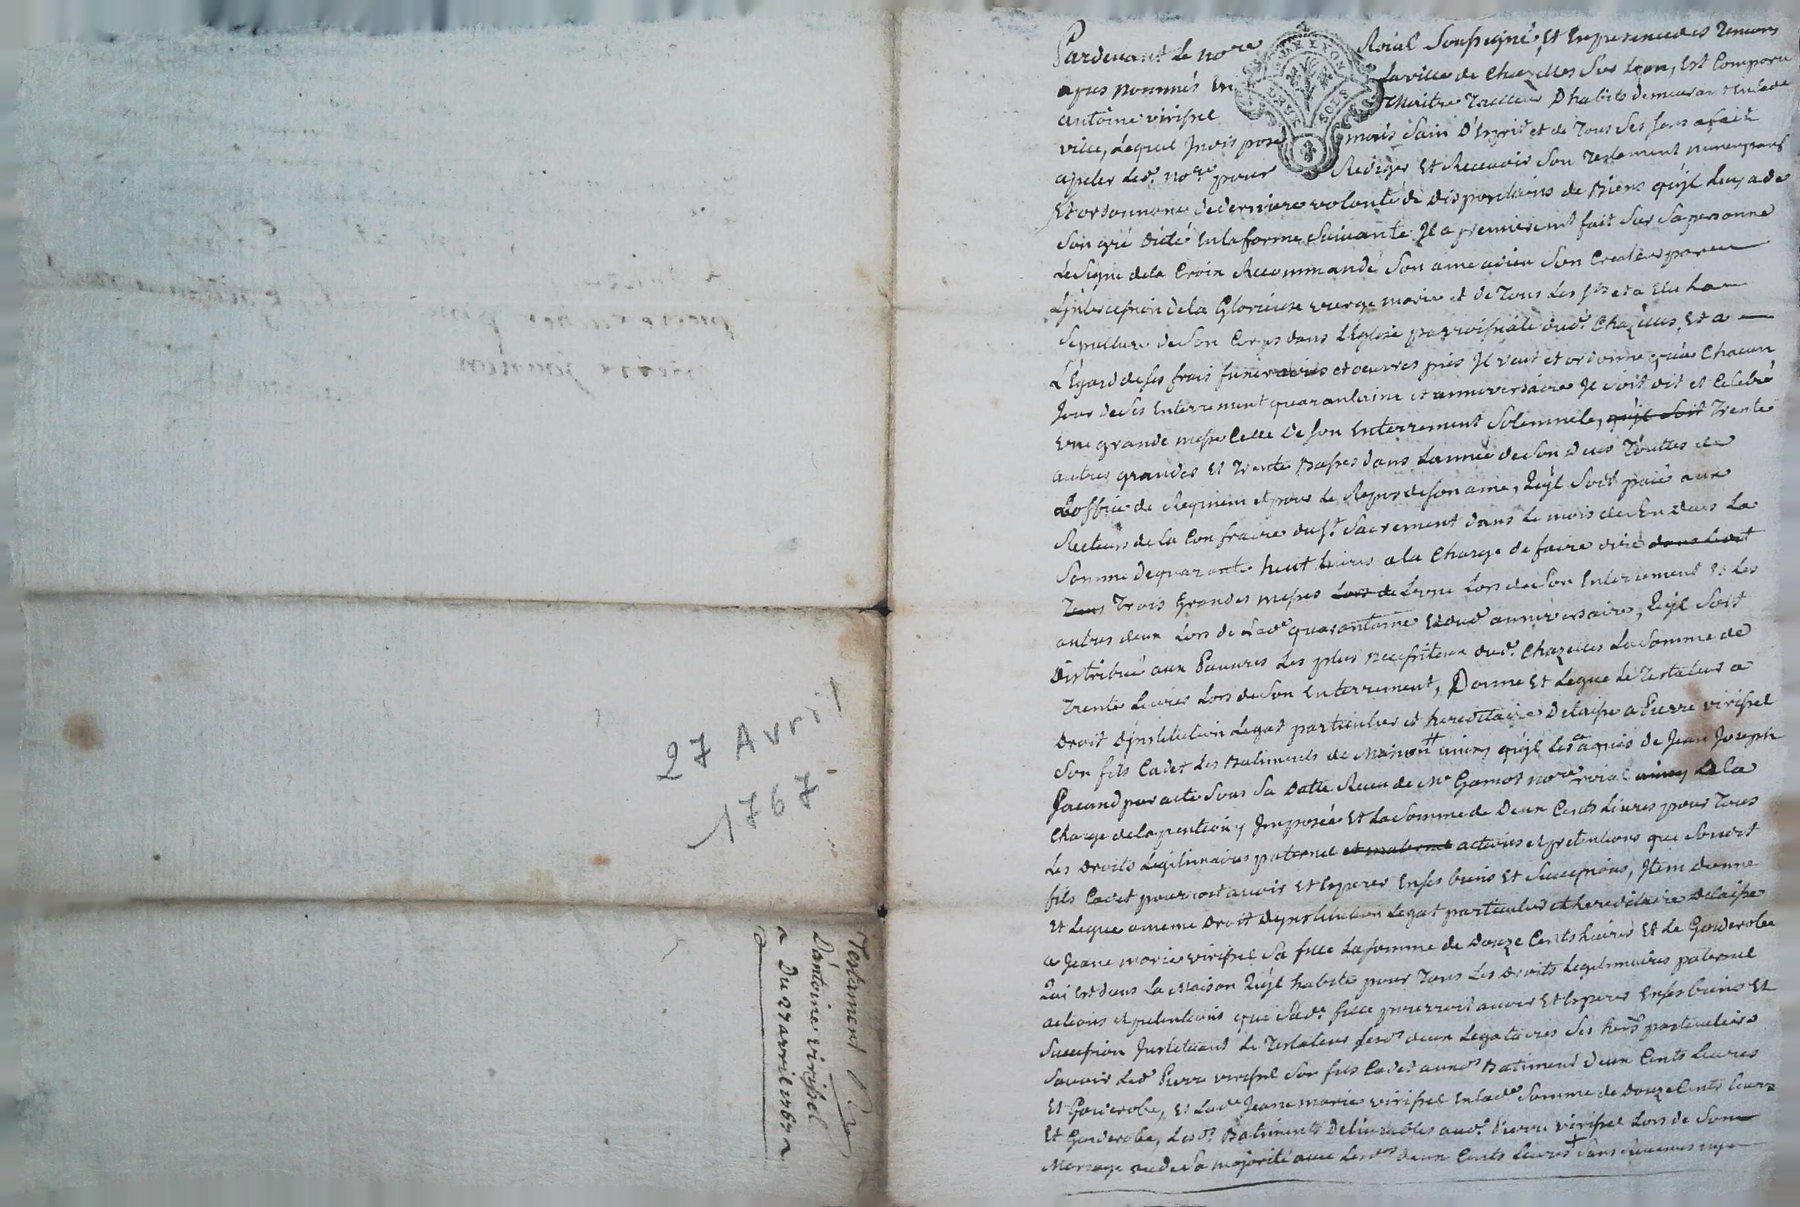 27 Avril
1767
Testament
D'antoine virissel
Du 27 avril 1767
Pardevant Le no.re Roial Soussigné, Et En presence des Temoins
apres nommés En La ville de Chazelles Sur Lyon, Est Comparu
antoine virissel Maitre Tailleur D'habits demeurant en lade
ville, Lequel Indisposé mais Sain D'Esprit et de Tous Ses Sens a fait
apeler Led. no.re pour Rediger Et Recevoir Son Testament nuncupatif
Et ordonnance de derniere volonté de dispositions de Biens qu'jl Luy a de
Son gré dicté En la forme Suivante Il a premierement fait Sur Sa personne
Le Signe de la Croix Recommandé Son ame a dieu Son Createur par
L'jntercession de la Glorieuse vierge marie et de Tous Les Sts et a Elu La
Sepulture de Son Corps dans L'Eglise parroissiale dud. Chazelles, Et a
L'Egard de Ses frais funeraires et oeuvres pies Il veut et ordonne qu'a Chacun
Jour de Ses Enterrement quarantaine et anniversaire Il Soit dit et Celebré
une grande messe Celle de Son Enterrement Solemnele, qu'jl Soit Trente
autres grandes Et Trente Basses dans L'année de Son Deces Touttes de
L'office de Requiem et pour Le Repos de Son ame, Qu'jl Soit paié aux
Recteurs de la Confrairie du St. Sacrement dans Le mois de Son deces La
Somme de quarante huit Livres a la Charge de faire dire
Trois Grandes messes L'une Lors de Son Enterrement Et Les
autres deux Lors de Lade quarantaine Et dud anniversaire, Qu'jl Soit
Distribué aux Pauvres Les plus necessiteux dud. Chazelles La Somme de
Trente Livres Lors de Son Enterrement, Donne Et Legue Le Testateur a
Droit d'jnstitution Legat particulier et hereditaire Delaisse a Pierre virissel
Son fils Cadet Les Batiments de Maison qu'jl a aquis de Jean Joseph
par acte Sous Sa Datte Receu de Me no.re roial a la
Charge de la pention y Imposée Et La Somme de Deux Cents Livres pour Tous
Les Droits Legitimaires paternel et maternel actions et pretentions que Son dt
fils Cadet pourroit avoir Et Esperer En Ses biens Et Successions, Item donne
Et Legue a meme Droit d'jnstitution Legat particulier et hereditaire Delaisse
a Jeane marie virissel Sa fille La Somme de Douze Cents Livres Et Le Garderobe
Qui Est dans La Maison Qu'jl habite pour Tous Les Droits Legitimaires paternel
actions et pretentions que Sade fille pourroit avoir Et Esperer En Ses biens Et
Succession Instituant Le Testateur Sesd. deux Legataires Ses hers particuliers
Savoir Led Pierre virissel Son fils Cadet auxd Batiment Deux Cents Livres
Et Garderobe, Et Lade Jeane marie virissel En lade Somme de Douze Cents Livres
Et Garderobe, Lesd. Batiments Delivrables aud. Pierre virissel Lors de Son
Mariage ou de Sa majorité avec Lesd deux Cents Livres Sans